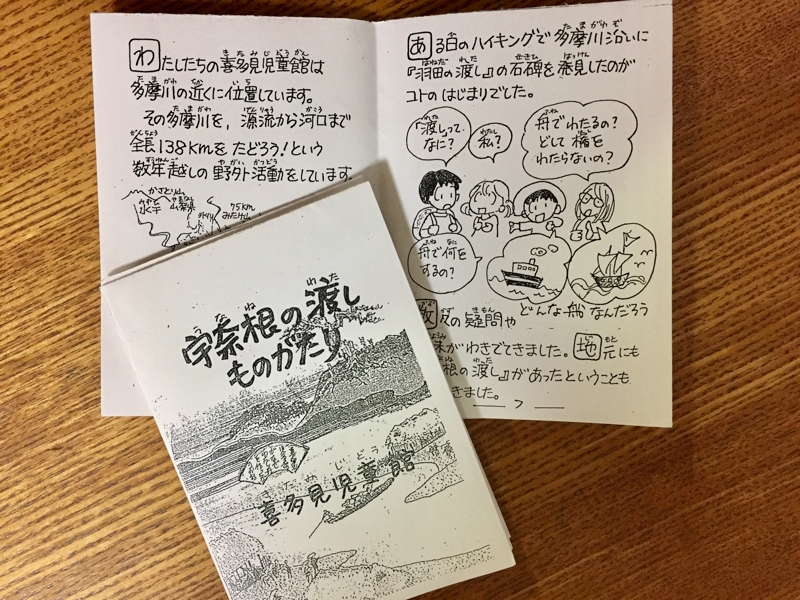 わたしたちの喜多見児童館は
多摩川の近くに位置しています。
その多摩川を、源流から河口まで
全長138kmをたどろう!という
数年越しの野外活動をしています。
かさとり山
水干
山梨県
75km
みたけ山
ある日のハイキングで多摩川沿いに
『羽田の渡し』の石碑を発見したのが
コトのはじまりでした。
「渡し」って、
なに?
私?
舟でわたるの?
どして橋を
わたらないの?
舟で何を
するの?
どんな船なんだろう
の疑問や
がわきでてきました。地元にも
根の渡し』があったということも
きました。
7
宇奈根の渡し
ものがたり
喜多見児童館